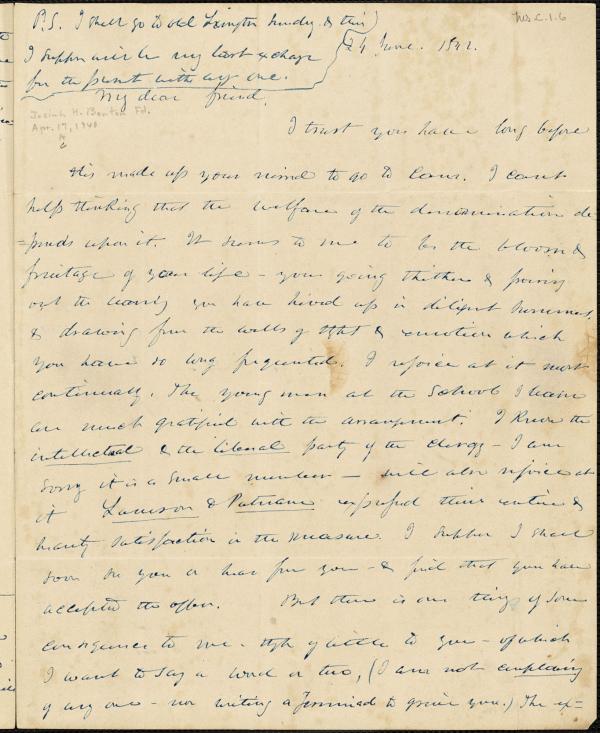 P.S. I shall go to old Lexington Sunday. & this
I suppose will be my last exchange
for the present with any one.
Ms. C. 1. 6
24 June. 1842.
My dear friend.
Josiah H. Benton Fd.
Apr. 17, 1940
I trust you have long before
this made up your mind to go to I cant
help thinking that the welfare of the denomination de
=pends upon it. It seems to me to be the bloom &
fruitage of your life – your going thither & pouring
out the you have hived up in diligent
& drawing from the wells of thgt & emotion which
you have so long frequented. I rejoice at it most
continually. The young men at the School I learn
are much gratified with the arrangement. I know the
intellectual & the liberal party of the clergy – I am
sorry it is a small number – will also rejoice at
it Lamson & Putnam expressed their entire &
hearty satisfaction in the measure. I suppose I shall
soon see you or hear from you – & find that you have
accepted the offer. But there is one thing of some
consequence to me – thgh of little to you – of which
I want to say a word or two, (I am not complaining
of any one – nor writing a Jeremiad to grieve you.) The ex=